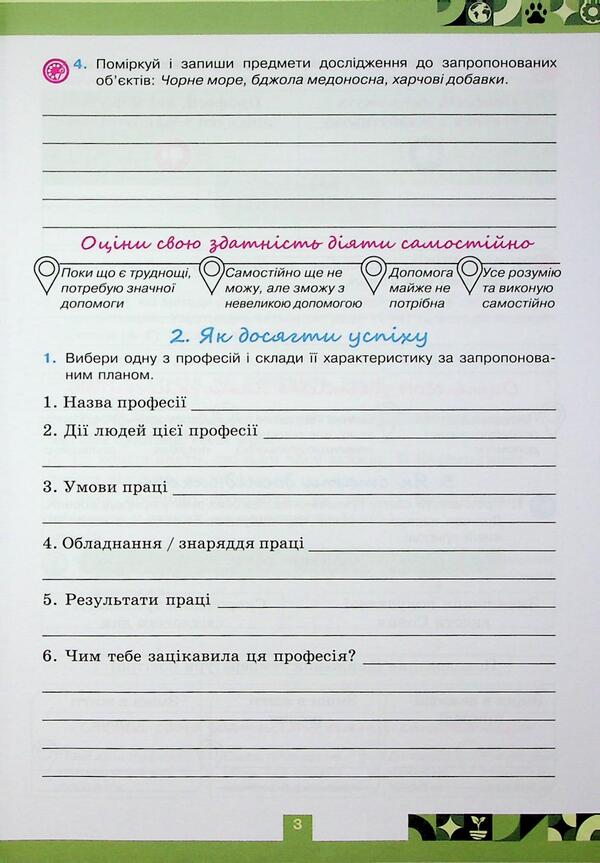 4. Поміркуй і запиши предмети дослідження до запропонованих
об'єктів: Чорне море, бджола медоносна, харчові добавки.
Оціни свою здатність діяти самостійно
Поки що є труднощі,
потребую значної
допомоги
Самостійно ще не
можу, але зможу з
невеликою допомогою
Допомога
майже не
потрібна
Усе розумію
та виконую
самостійно
2. Як досягти успіху
1. Вибери одну з професій і склади її характеристику за запропонова-
ним планом.
1. Назва професії
2. Дії людей цієї професії
3. Умови праці
4. Обладнання / знаряддя праці
5. Результати праці
6. Чим тебе зацікавила ця професія?
3